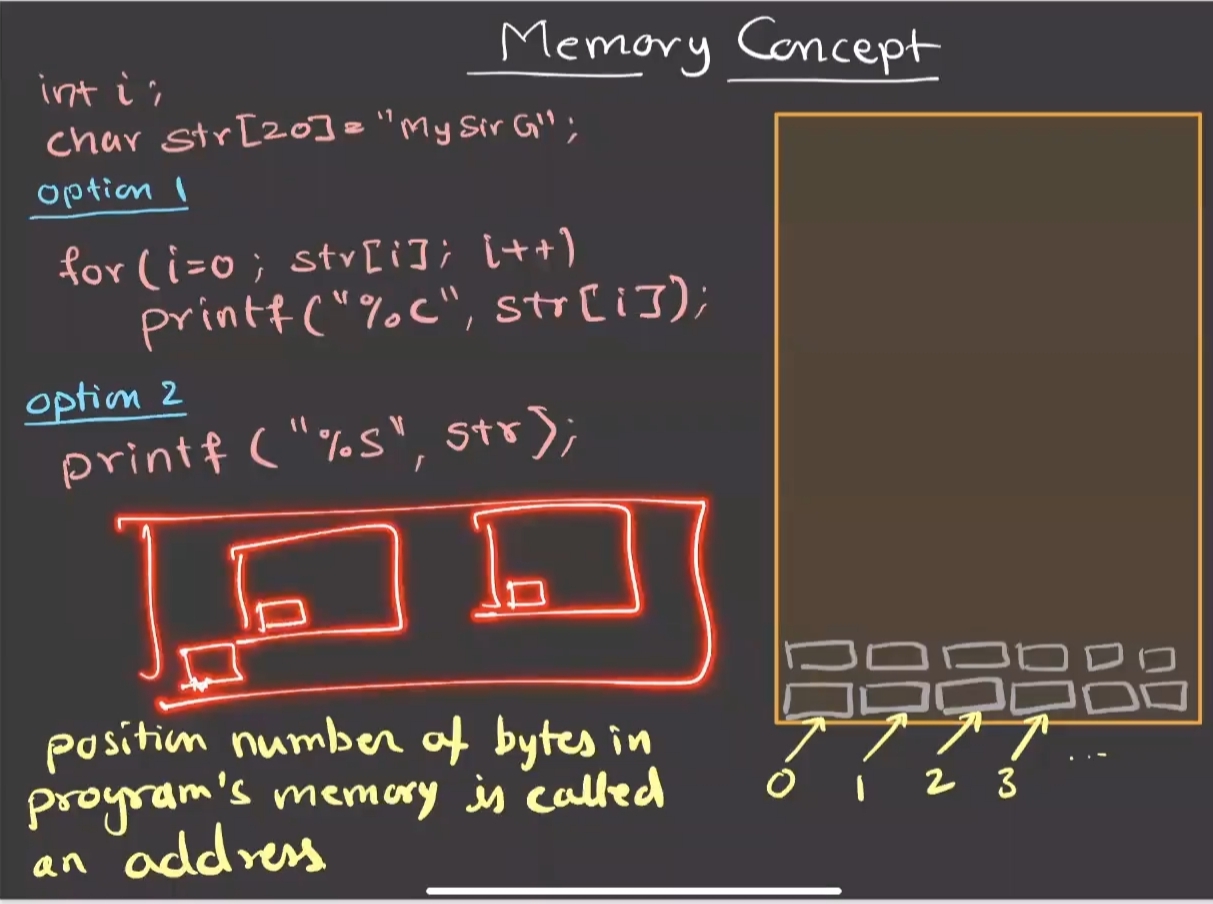 Memory Concept
int i;
char str[20]="MySirG";
option 1
for(i=0; str[i]; i++)
printf("%c", str[i]);
option 2
printf("%s", str);
position number of bytes in
program's memory is called
an address
0 1 2 3 ...